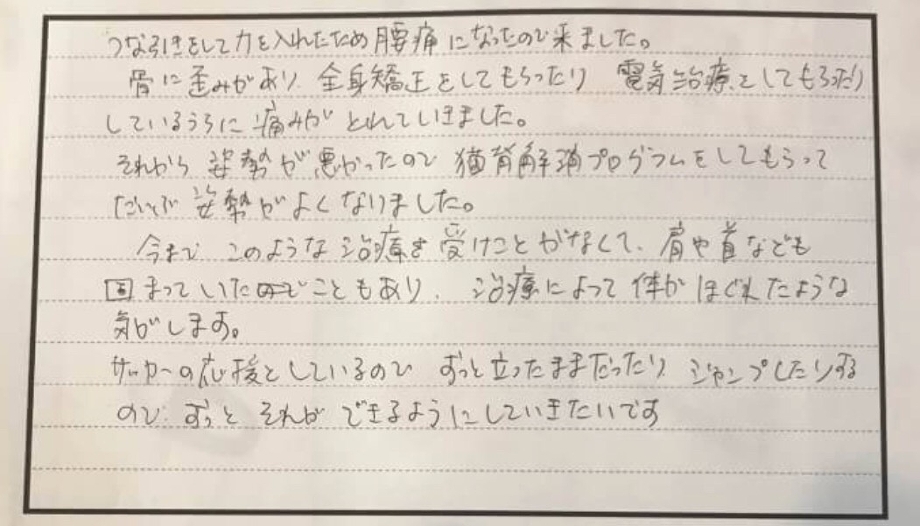 つな引きをして力を入れたため腰痛になったので来ました。
骨に歪みがあり、全身矯正をしてもらったり 電気治療をしてもらったり
しているうちに痛みがとれていきました。
それから 姿勢が悪かったので 猫背解消プログラムをしてもらって
だいぶ姿勢がよくなりました。
今まで このような治療を受けことがなくて、肩や首なども
固まっていたこともあり、治療によって体がほぐれたような
気がします。
サッカーの応援をしているので ずっと立ったままだったり ジャンプしたりする
ので ずっと それができるようにしていきたいです